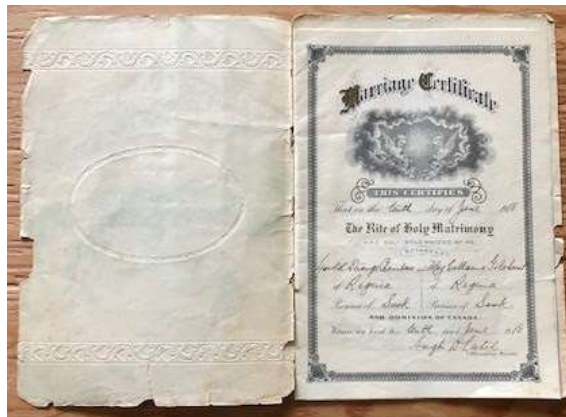 Marriage Certificate
THIS CERTIFIES
That on the tenth day of June 1918
The Rite of Holy Matrimony
WAS DULY SOLEMNIZED BY ME
BETWEEN
of Regina of Regina
Province of Sask Province of Sask
AND DOMINION OF CANADA
Witness my hand this tenth day of June 1918
Hugh D